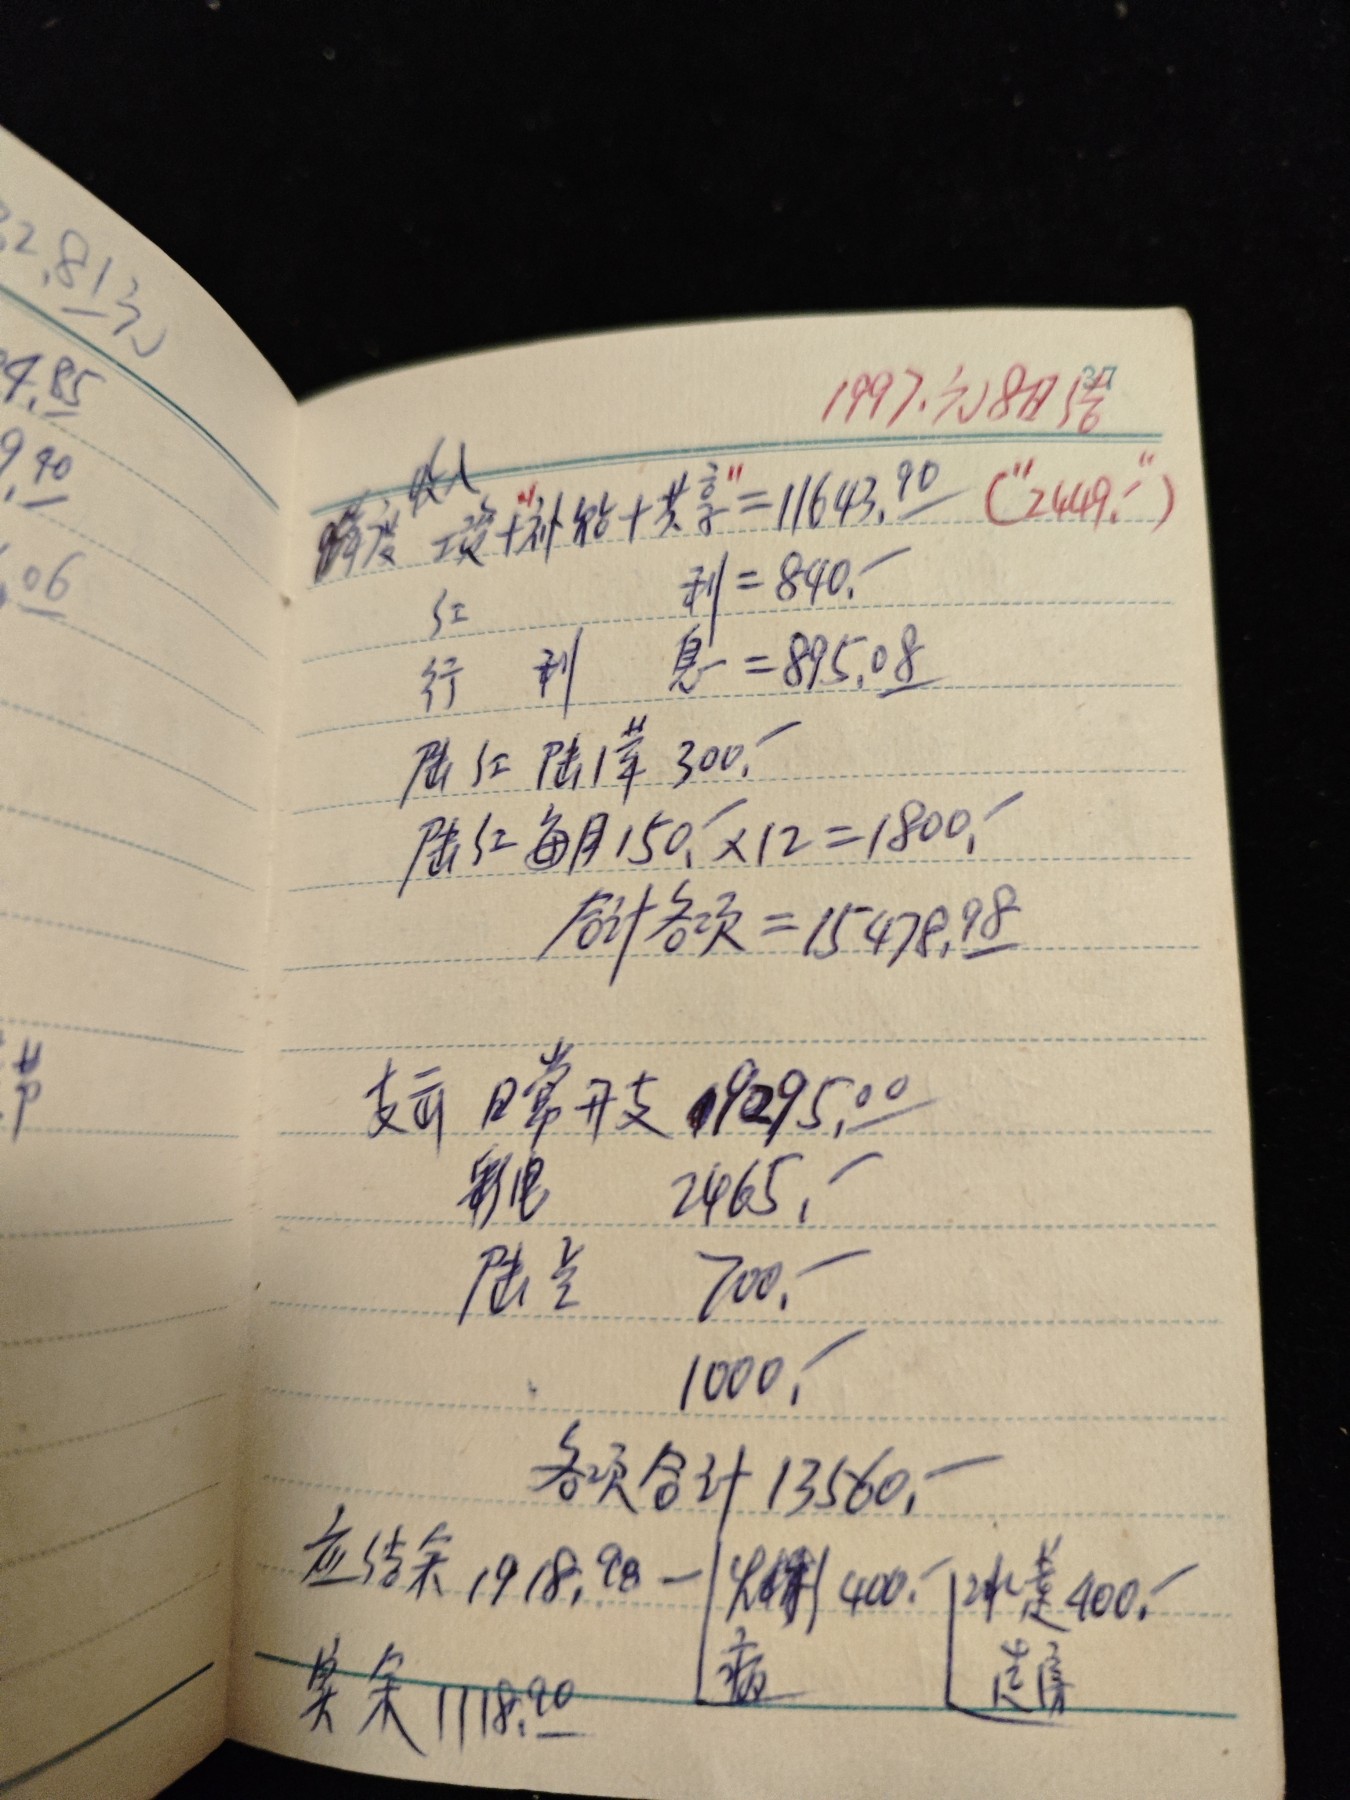 2.81元
4.85
9.90
.06
37
1997.元8日结
年度收入 工资+"补贴+共享"=11643.90 ("2449.-")
红 利=840.-
行 利 息=895.08
陆红 陆伟 300.-
陆红每月150.-×12=1800.-
合计各项=15478.98
支出 日常开支 9295.00
彩电 2465.-
陆兰 700.-
1000.-
各项合计 13560.-
应结余 1918.98 — 400.- 400.-
病 造房
实余 1118.90